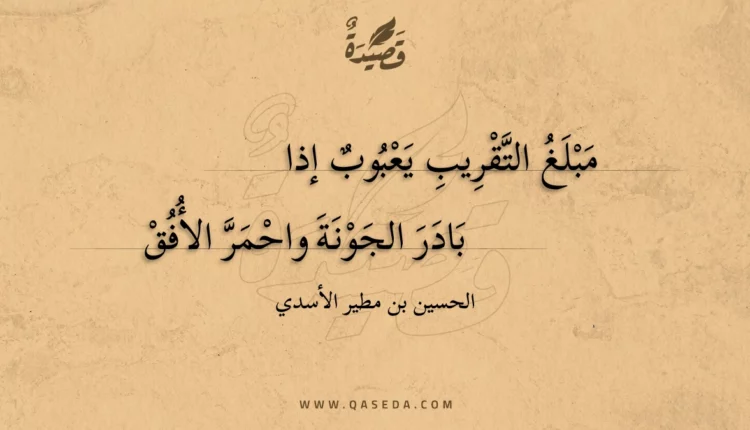 قَصِيْدَةٌ
مَبْلَغُ التَّقْرِيبِ يَعْبُوبٌ إذا
بَادَرَ الجَوْنَةَ واحْمَرَّ الأُفُقْ
الحسين بن مطير الأسدي
WWW.QASEDA.COM